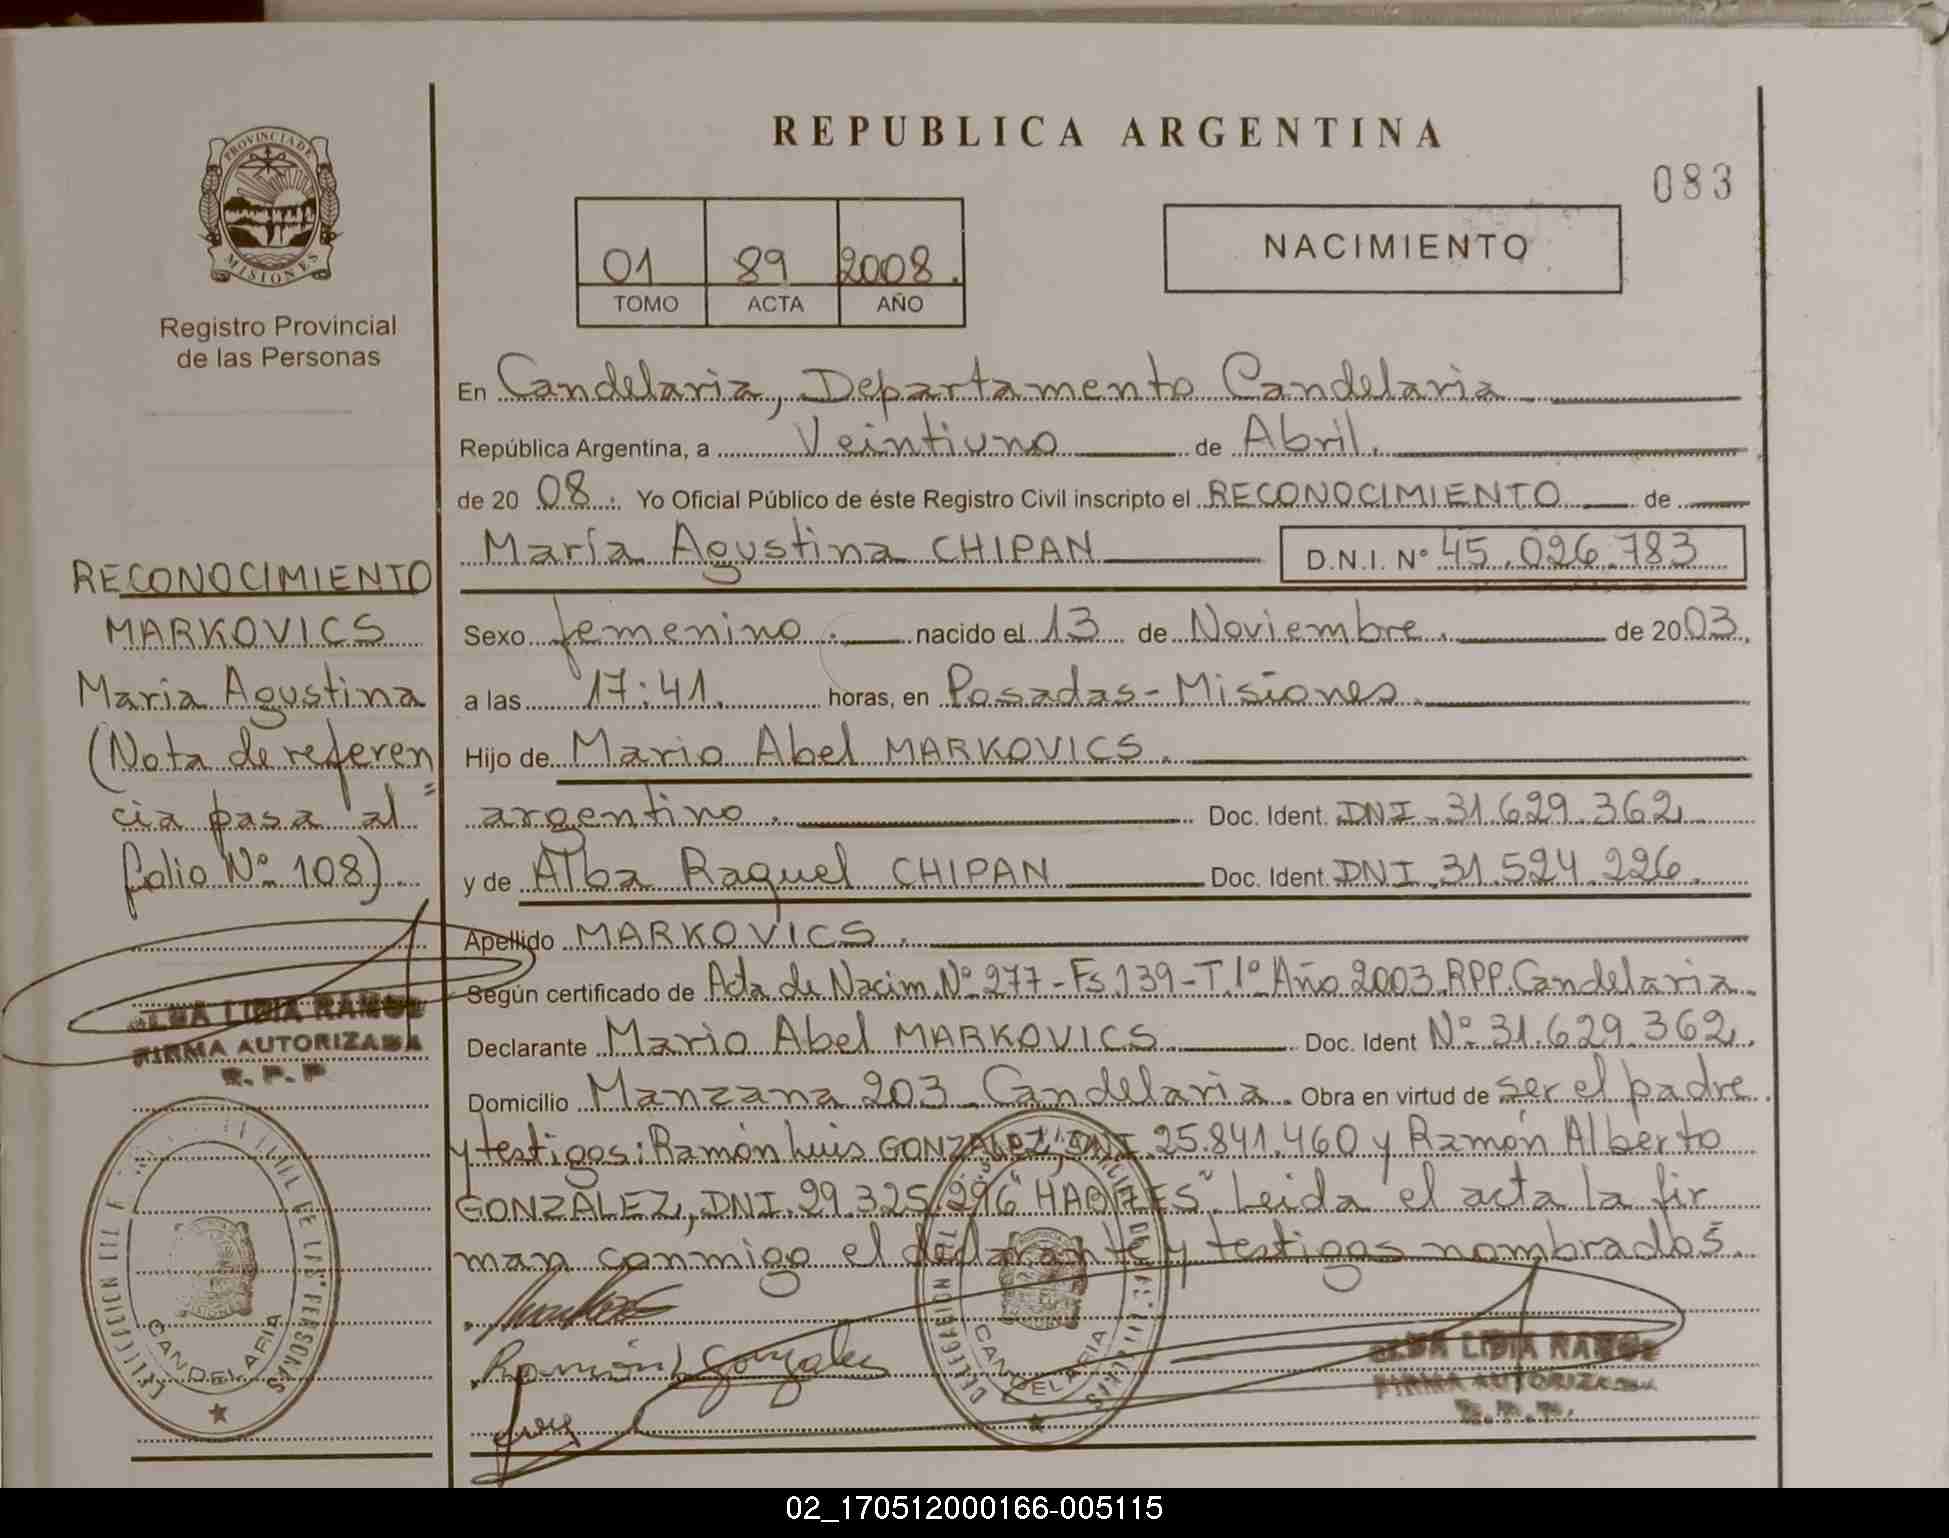 PROVINCIA DE
MISIONES
Registro Provincial
de las Personas
RECONOCIMIENTO
MARKOVICS
Maria Agustina
(Nota de referen
cia pasa al
folio Nº 108)
LIDIA
FIRMA AUTORIZADA
R. P. P
CANDELARIA
REPUBLICA ARGENTINA
083
01 89 2008.
TOMO ACTA AÑO
NACIMIENTO
En Candelaria, Departamento Candelaria
República Argentina, a Veintiuno de Abril.
de 20 08. Yo Oficial Público de éste Registro Civil inscripto el RECONOCIMIENTO de
María Agustina CHIPAN D.N.I. Nº 45.026.783
Sexo femenino. nacido el 13 de Noviembre. de 2003,
a las 17:41. horas, en Posadas-Misiones.
Hijo de Mario Abel MARKOVICS.
argentino. Doc. Ident. DNI.31.629.362,
y de Alba Raquel CHIPAN Doc. Ident. DNI.31.524.226.
Apellido MARKOVICS.
Según certificado de Acta de Nacim. Nº 277-Fs.139-T.1º Año 2003.RPP.Candelaria.
Declarante Mario Abel MARKOVICS Doc. Ident Nº 31.629.362,
Domicilio Manzana 203 Candelaria. Obra en virtud de ser el padre
y testigos: Ramón Luis GONZALEZ, DNI.25.841.460 y Ramón Alberto
GONZALEZ, DNI.29.325.296 "HABILES". Leida el acta la fir
man conmigo el declarante y testigos nombrados.
Ramón L Gonzalez
LIDIA
FIRMA AUTORIZADA
R. P. P.
CANDELARIA
02_170512000166-005115